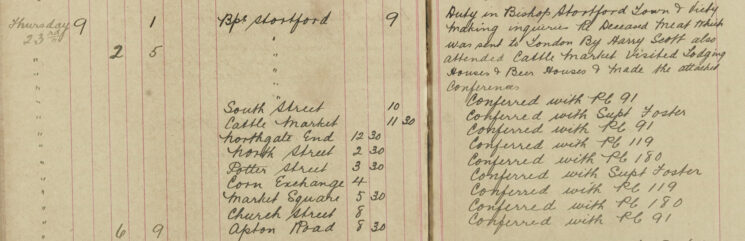 Thursday 9 1 Bps Stortford 9 Duty in Bishop Stortford Town & Victy
23rd " making inquiries Re Deceased Meat Which
" 2 5 " was sent to London By Harry Scott also
" " attended Cattle Market Visited Lodging
" " Houses & Beer Houses & made the attached
" Conferences
" South Street 10 Conferred with PC 91
" Cattle Market 11 30 Conferred with Supt Foster
" Northgate End 12 30 Conferred with PC 91
" North Street 2 30 Conferred with PC 119
" Potter Street 3 30 Conferred with PC 180
" Corn Exchange 4 Conferred with Supt Foster
" Market Square 5 30 Conferred with PC 119
" Church Street 8 Conferred with PC 180
" 6 9 Apton Road 8 30 Conferred with PC 91